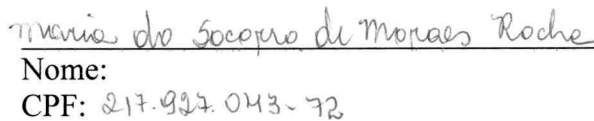 Maria do Socorro de Moraes Rocha
Nome:
CPF: 217.927.043-72